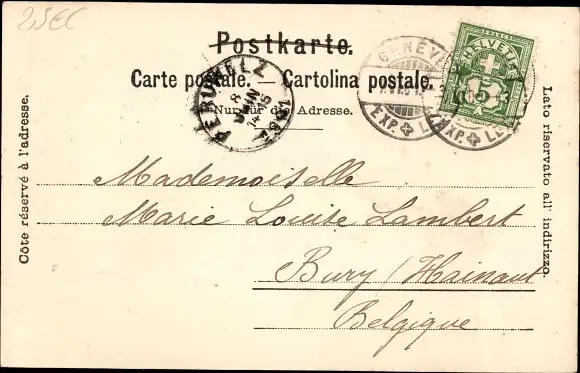 Postkarte.
Carte postale. — Cartolina postale.
Nur für die Adresse.
Côte réservé à l'adresse.
Lato riservato all' indirizzo.
FRANCO
HELVETIA
5
GENÈVE
EXP. LET
EXP. LET
PERUWELZ
8
JUIN
14-15
Mademoiselle
Marie Louise Lambert
Bury (Hainaut
Belgique